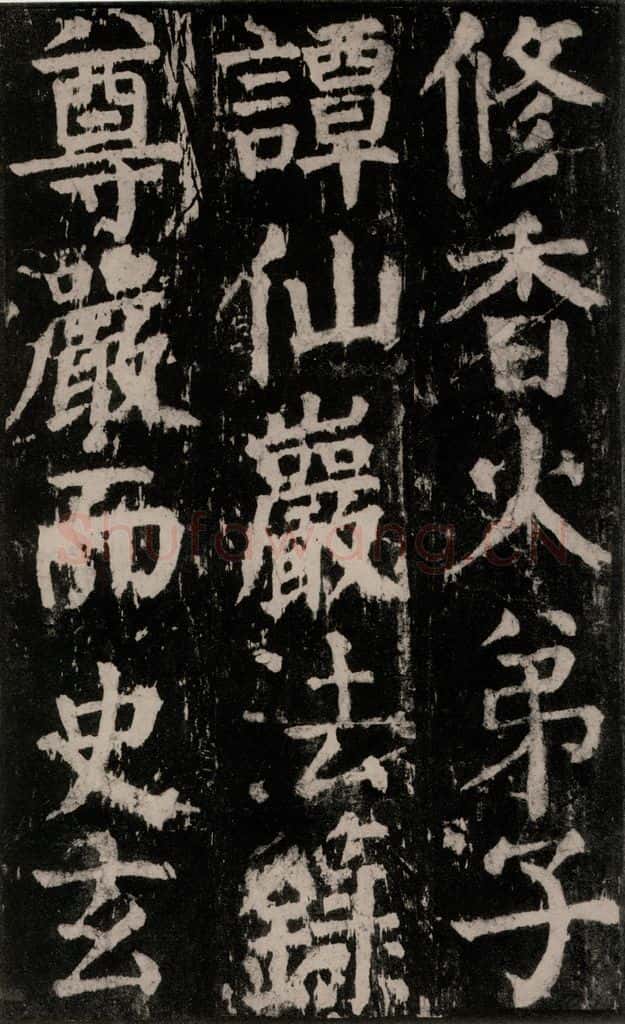 修香火弟子
譚仙巖法籙
尊嚴而史玄
Shufawang.CN